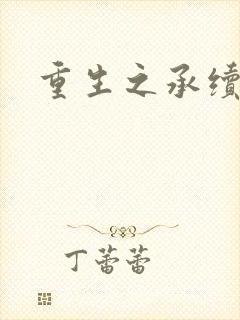 重生之承续
丁蕾蕾